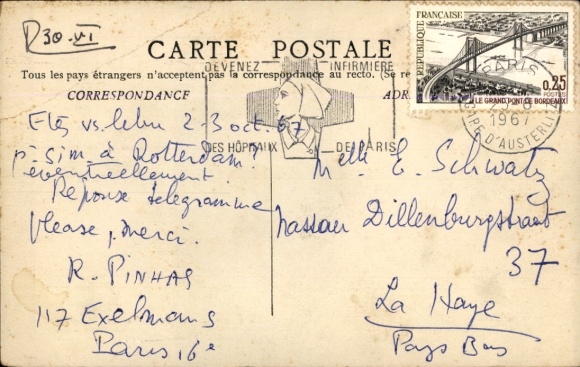 R 30-VI
CARTE POSTALE
Tous les pays étrangers n'acceptent pas la correspondance au recto. (Se re
CORRESPONDANCE
ADR
DEVENEZ INFIRMIERE
DES HÔPITAUX DE PARIS
RÉPUBLIQUE FRANÇAISE
0,25
POSTES
LE GRAND PONT DE BORDEAUX
PARIS
1967
GARE D'AUSTERLITZ
Etes vs. libre 2-3 oct. 67
pr. sim. à Rotterdam?
éventuellement.
Réponse télégramme
please, merci.
R. PINHAS
117 Exelmans
Paris 16e
Melle E. Schwatz
Nassau Dillenburgstraat
37
La Haye
Pays Bas